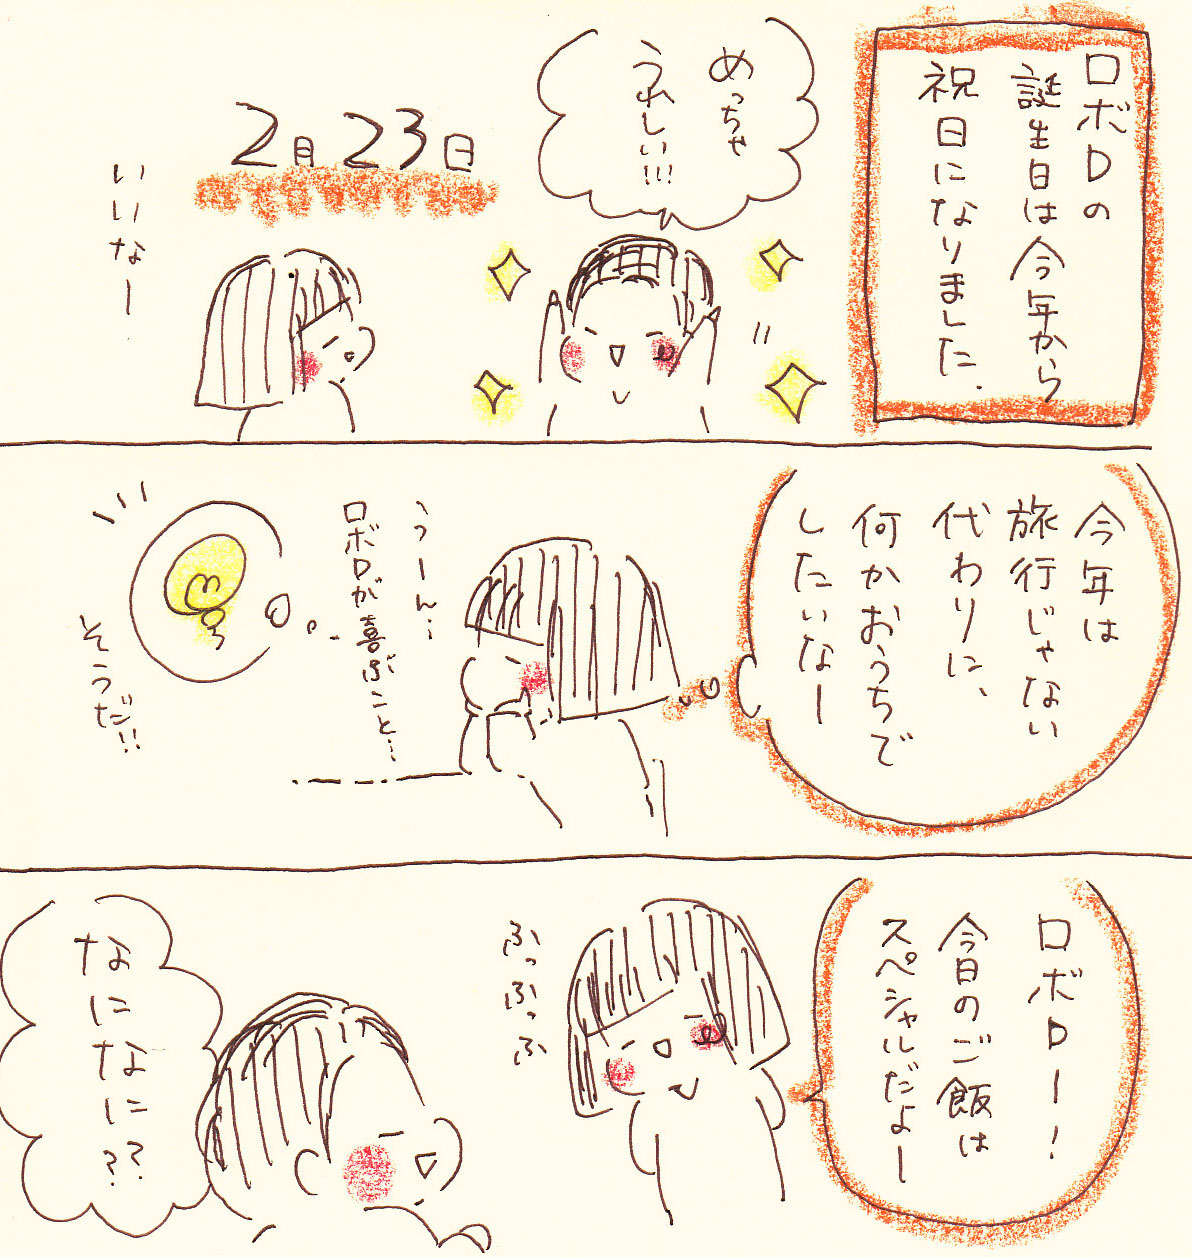 ロボDの
誕生日は今年から
祝日になりました.
めっちゃ
うれしい!!!
2月23日
いいなー
今年は
旅行じゃない
代わりに、
何かおうちで
したいなー
うーん…
ロボDが喜ぶこと…
そうだ!!
ロボDー!
今日のご飯は
スペシャルだよー
ふっふっふ
なになに??